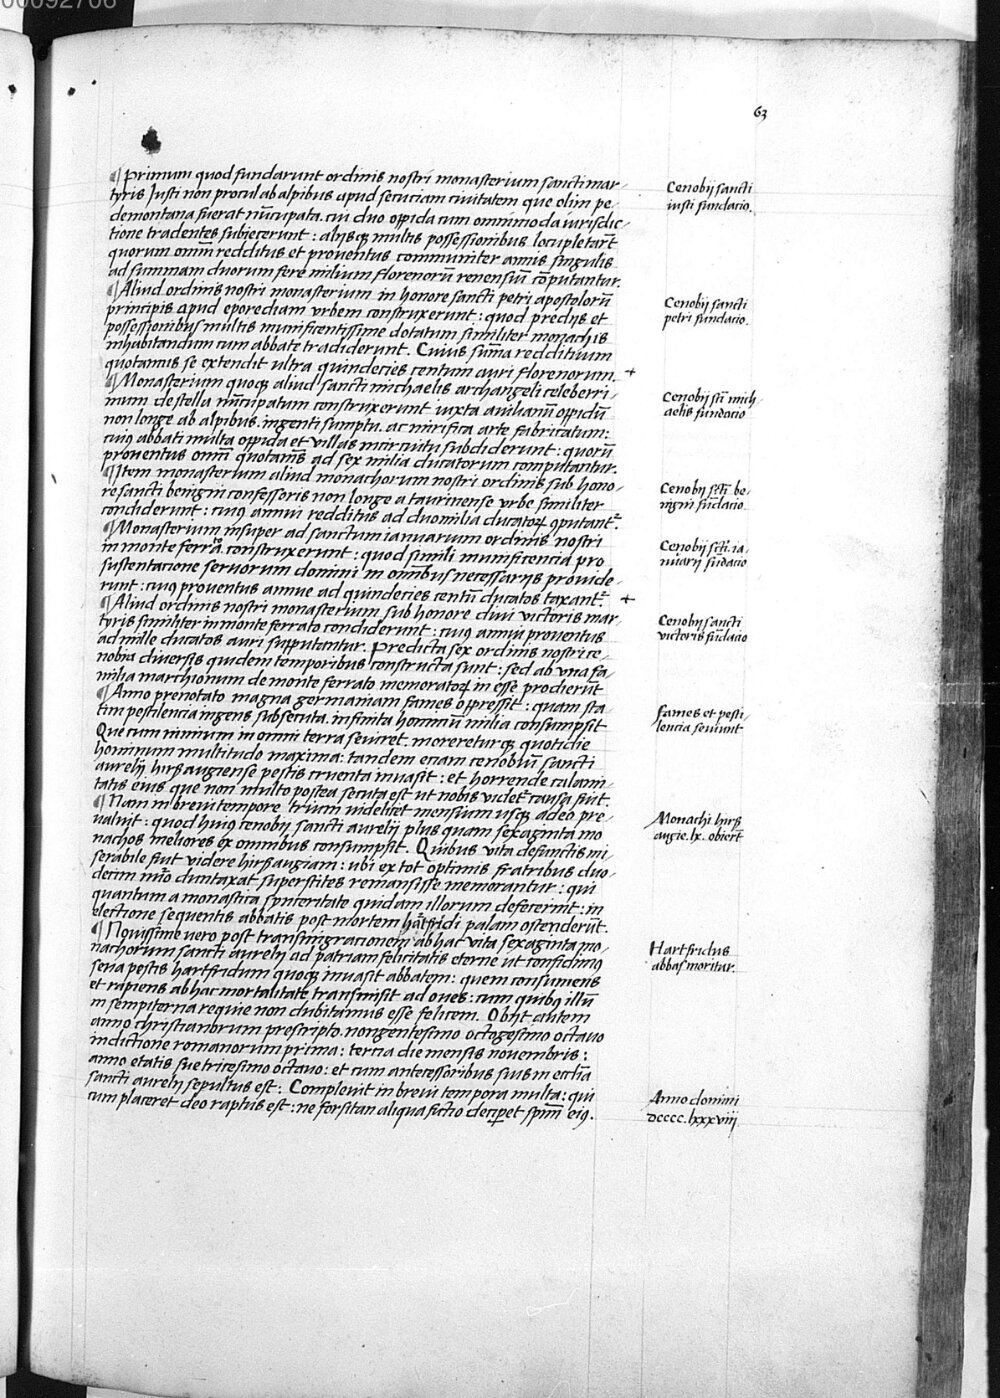 00092706
63
¶ Primum quod fundarunt ordinis nostri monasterium sancti mar-
tyris Iusti non procul ab alpibus apud secuciam ciuitatem que olim pe-
demontana fuerat nūcupata. cui duo oppida cum omnimoda iurisdic-
tione tradentes subiecerunt: alijsqꝫ multis possessionibus locupletarūt
quorum omniū redditus et prouentus communiter annis singulis
ad summam duorum fere milium florenorū renensiū cōputantur.
¶ Aliud ordinis nostri monasterium in honore sancti petri apostolorū
principis apud eporediam vrbem construxerunt: quod predijs et
possessionibus multis munificentissime dotatum similiter monachis
inhabitandum cum abbate tradiderunt. Cuius sūma reddituum
quotannis se extendit vltra quindecies centum auri florenorum. +
¶ Monasterium quoqꝫ aliud sancti michaelis archangeli celeberri-
mum de stella nūcupatum construxerunt iuxta auilianū oppidū
non longe ab alpibus. ingenti sumptu. ac mirifica arte fabricatum:
cuiꝰ abbati multa oppida et villas in circuitu subdiderunt: quorū
prouentus omnī quotannis ad sex milia ducatorum computantur.
¶ Item monasterium aliud monachorum nostri ordinis sub hono-
re sancti benigni confessoris non longe a taurinense vrbe similiter
condiderunt: cuiꝰ annui redditus ad duo milia ducatoꝝ ꝯputant᷑.
¶ Monasterium insuper ad sanctum ianuarium ordinis nostri
in monte ferrato construxerunt: quod simili munificencia pro
sustentacione seruorum domini in omnibus necessarijs prouide-
runt: cuiꝰ prouentus annue ad quindecies centū ducatos taxant᷑. +
¶ Aliud ordinis nostri monasterium sub honore diui victoris mar-
tyris similiter in monte ferrato condiderunt: cuiꝰ annui prouentus
ad mille ducatos auri supputantur. Predicta sex ordinis nostri ce-
nobia diuersis quidem temporibus constructa sunt: sed ab vna fa-
milia marchionum de monte ferrato memoratoꝝ in esse prodierūt
¶ Anno prenotato magna germaniam fames oppressit: quam sta-
tim pestilencia ingens subsecuta. infinita hominū milia consumpsit
Que cum nimium in omni terra seuiret. morereturqꝫ quotidie
hominum multitudo maxima: tandem eciam cenobiū sancti
aurelij hirßaugiense pestis cruenta inuasit: et horrende calami-
tatis eius que non multo postea secuta est vt nobis videt᷑ causa fuit.
¶ Nam in breui tempore trium videlicet mensium vsqꝫ adeo pre-
ualuit: quod huiꝰ cenobij sancti aurelij plus quam sexaginta mo-
nachos meliores ex omnibus consumpsit. Quibus vita defunctis mi-
serabile fuit videre hirßaugiam: vbi ex tot optimis fratribus duo-
decim duntaxat superstites remansisse memorantur: qui
quantum a monastica synceritate quidam illorum defecerint: in
electione sequentis abbatis post mortem hartfridi palam ostenderūt.
¶ Nouissime vero post transmigracionem ab hac vita sexaginta mo-
nachorum sancti aurelij ad patriam felicitatis eterne vt confidimꝰ
seua pestis hartfridum quoqꝫ inuasit abbatem: quem consumens
et rapiens ab hac mortalitate transmisit ad oues: cum quibꝰ illū
in sempiterna requie non dubitamus esse felicem. Obijt autem
anno christianorum prescripto. nongentesimo octogesimo octauo
indictione romanorum prima: tercia die mensis nouembris:
anno etatis sue tricesimo octauo: et cum antecessoribus suis in ecclīa
sancti aurelij sepultus est: Compleuit in breui tempora multa: qui
cum placeret deo raptus est: ne forsitan aliqua fictio decip̄et spm̄ eiꝰ.
Cenobij sancti
iusti fundacio.
Cenobij sancti
petri fundacio.
Cenobij sti mich-
aelis fundacio
Cenobij scti be-
nigni fūdacio
Cenobij scti ia-
nuarij fūdacio
Cenobij sancti
victoris fūdacio
Fames et pesti-
lencia seuiunt
Monachi hirß
augie. lx. obierūt
Hartfridus
abbas moritur.
Anno domini
dcccc. lxxxviij